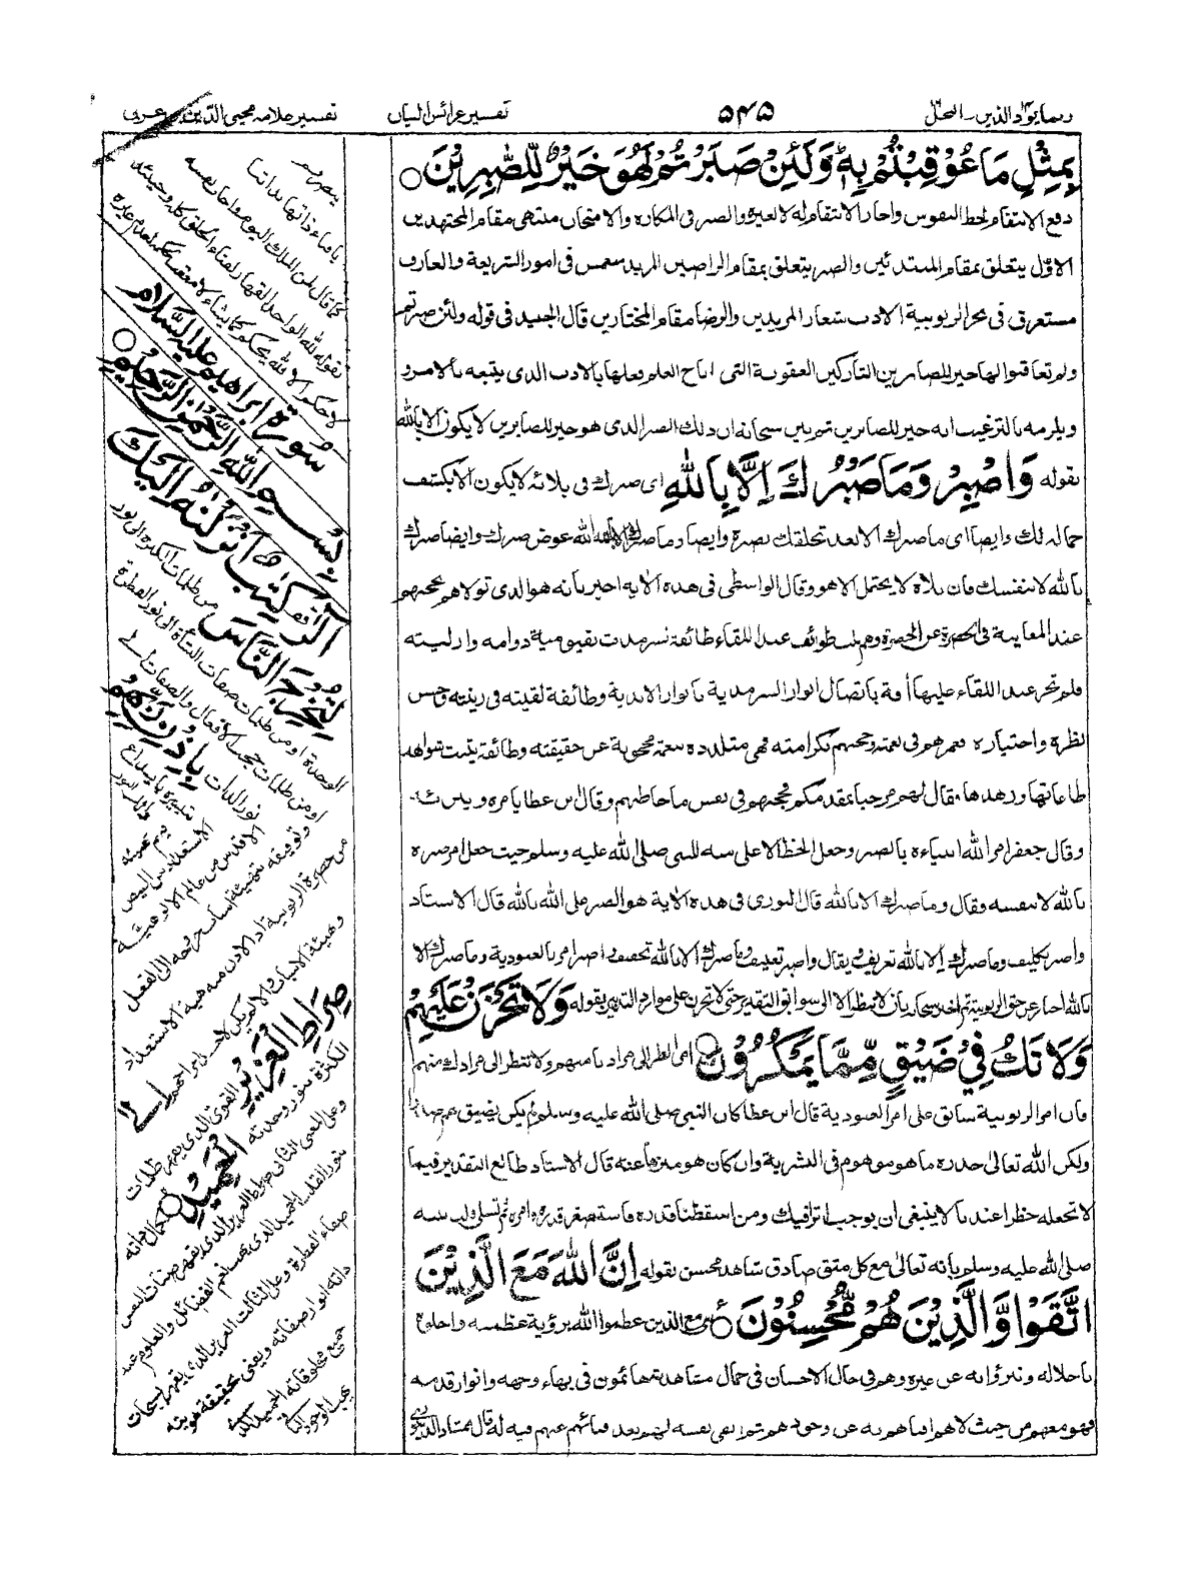 ربما يودّ الذين ـ النحل
۵۴۵
تفسير عرائس البيان
تفسير علامه محيى الدين بن عربى
بِمِثْلِ مَا عُوقِبْتُمْ بِهٖ وَلَئِنْ صَبَرْتُمْ لَهُوَ خَيْرٌ لِّلصّٰبِرِيْنَ
دفع الانتقام لحظ النفوس واجاز الانتقام له لا لغيره والصبر فى المكاره والامتحان منتهى مقام المجتهدين
الاوّل يتعلق بمقام المبتدئين والصبر يتعلق بمقام الراضين المريد منغمس فى امور الشريعة والعارف
مستغرق فى بحر الربوبية الادب شعار المريدين والرضا مقام المختارين قال الجنيد فى قوله ولئن صبرتم
ولم تعاقبوا لها خير للصابرين التاركين العقوبة التى اباح العلم فعلها بالادب الذى يتبعه بالامر و
ويلزمه بالترغيب انه خير للصابرين ثم بين سبحانه ان ذلك الصبر الذى هو خير للصابرين لا يكون الا بالله
بقوله وَاصْبِرْ وَمَا صَبْرُكَ اِلَّا بِاللّٰهِ اى صبرك فى بلائه لا يكون الا بكشف
جماله لك وايضا اى ما صبرك الا بعد تخلقك بصبره وايضا وما صبرك الا بالله عوض صبرك وايضا صبرك
بالله لا بنفسك فان بلاه لا يحتمل الا هو وقال الواسطى فى هذه الاية اخبر بانه هو الذى تولاهم بحجبهم
عند المعاينة فى الحضرة عن الحضرة وهم طوائف عبد اللقاء طائفة بقيومية دوامه وازليته
فلم تجر عند اللقاء عليها آفة باتصال انوار السرمدية بانوار الابدية وطائفة لقيته فى زينته وحسن
نظره واختياره فغمرهم فى نعمته وحجبهم بكرامته فهى متلذذه بنعمته محجوبة عن حقيقته وطائفة بتثبت شواهد
طاعاتها وزهدها فقال لهم مرحبا بمقدمكم فحجبهم فى نفس ما خاطبهم وقال ابن عطا يامره
وقال جعفر امر الله انبياءه بالصبر وجعل الحظ الاعلى منه للنبى صلى الله عليه وسلم حيث جعل امر صبره
بالله لا بنفسه فقال وما صبرك الا بالله قال النورى فى هذه الاية هو الصبر على الله بالله قال الاستاد
واصبر تكليف وما صبرك الا بالله تعريف ويقال واصبر تعنيف وما صبرك الا بالله تخفيف واصبر امر بالعبودية وما صبرك الا
بالله اخبار عن حق الربوبية ثم اخبر سبحانه بان لا ينظر الا الى سوابق التقدير حتى لا تحزن على موارد التدبير بقوله وَلَا تَحْزَنْ عَلَيْهِمْ
وَلَا تَكُ فِيْ ضَيْقٍ مِّمَّا يَمْكُرُوْنَ اى انظر الى مراد نا منهم ولا تنظر الى مرادك منهم
فان امر الربوبية سابق على امر العبودية قال ابن عطا كان النبى صلى الله عليه وسلم لم يكن بضيق
ولكن الله تعالى حذره ما هو موهوم فى البشرية وان كان هو منزها عنه قال الاستاد طالع التقدير فيما
لا تجعله خطرا عندنا لا ينبغى ان يوجب اثرا فيك ومن اسقطنا قدره فاستصغر قدره وامره ثم تسلى قلب نبيه
صلى الله عليه وسلم بانه تعالى مع كل متق صادق شاهد محسن بقوله اِنَّ اللّٰهَ مَعَ الَّذِيْنَ
اتَّقَوْا وَّالَّذِيْنَ هُمْ مُّحْسِنُوْنَ اى مع الذين عظموا الله برؤية عظمته واجلوه
باجلاله وتبرؤا به عن غيره وهم فى حال الاحسان فى جمال مشاهدته هائمون فى بهاء وجهه وانوار قدسه
فهو معهم من حيث لا هم افناهم به عن وجودهم ثم نفى نفسه لهم بعد فنائهم عنهم فيه له قال ممشاد الدينورى
ما قال لمن الملك اليوم واجاب نفسه
بقوله لله الواحد القهار
سورة ابراهيم عليه السلام
بِسْمِ اللّٰهِ الرَّحْمٰنِ الرَّحِيْمِ
الٓرٰ كِتٰبٌ اَنْزَلْنٰهُ اِلَيْكَ
لِتُخْرِجَ النَّاسَ من ظلمات الكثرة الى نور
الوحدة او من ظلمات صفات النشأة الى نور الفطرة
او من ظلمات حجب الافعال والصفات الى
نور الذات بِاِذْنِ رَبِّهِمْ
بتيسيره بايداع
الاستعداد من الفيض
الاقدس من عالم الالوهية
وتوفيقه بتهيئة اسباب خروجه الى الفعل
من حضرة الربوبية اذ الاذن منه هبة الاستعداد
وهيئة الاسباب والا لم يكن لاحد
صِرَاطِ الْعَزِيْزِ القوى الذى يقهر ظلمات
الكثرة بنور وحدته الْحَمِيْدِ بكمال ذاته
وعلى المعنى الثانى صراط العزيز الذى يقهر صفات النفس
بنور القلب الحميد الذى يهب نعم الفضائل والعلوم عند
صفاء الفطرة وعلى الثالث العزيز الذى يقهر بسبحات
ذاته انوار صفاته ويفنى بحقيقة هويته
جميع مخلوقاته الحميد الذى
يهب الوجود الباقى